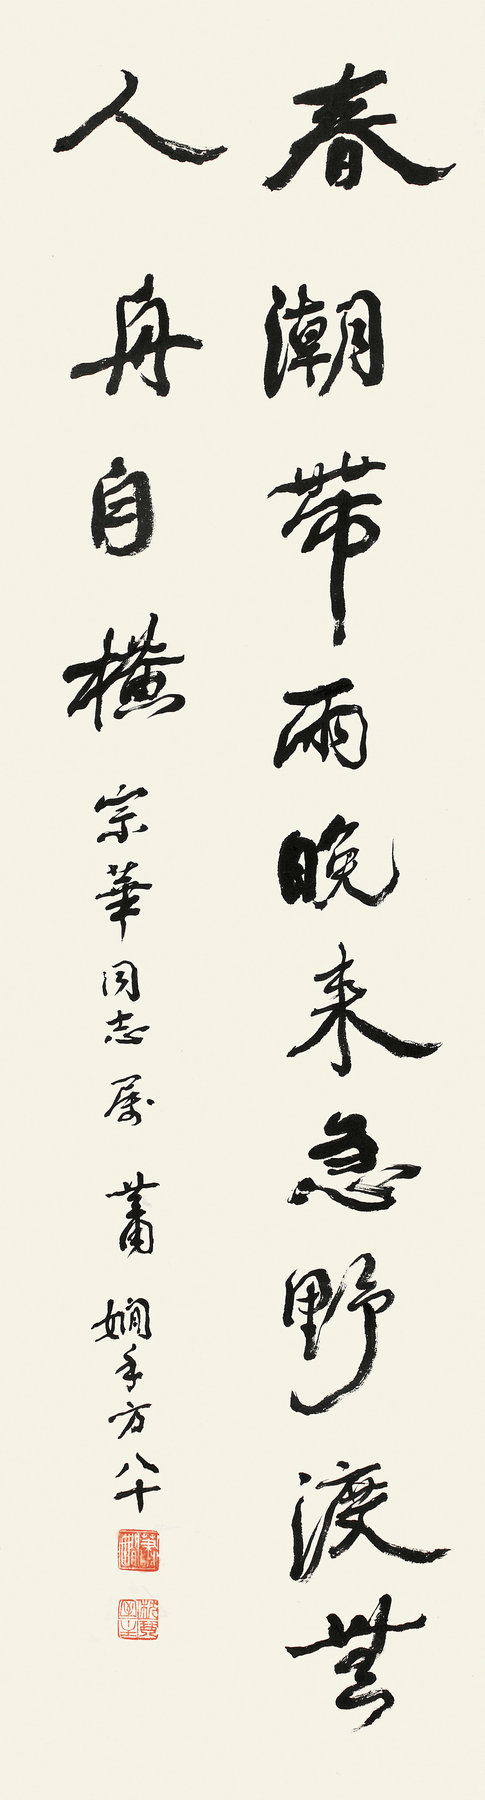 春潮带雨晚来急野渡無
人舟自横宗華同志属蕭嫻年方八十
蕭嫻